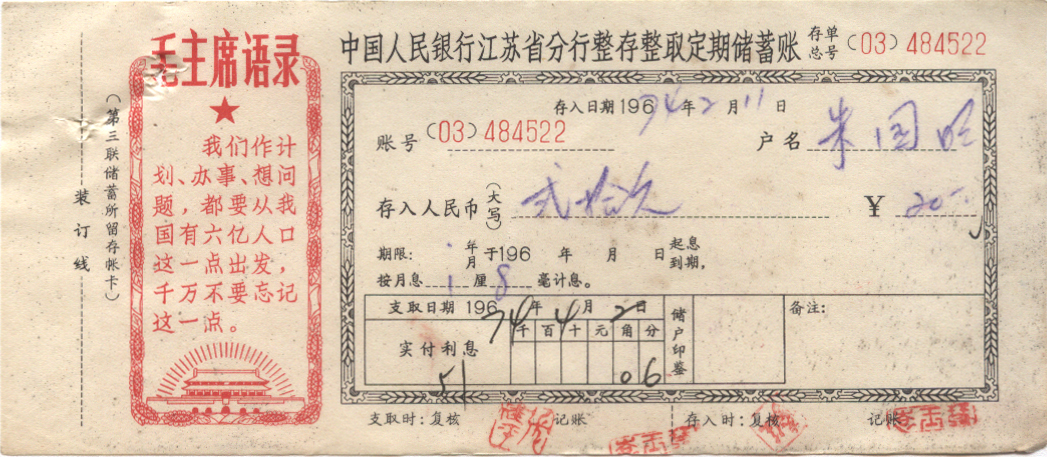 毛主席语录
我们作计
划、办事、想问
题，都要从我
国有六亿人口
这一点出发，
千万不要忘记
这一点。
（第三联储蓄所留存帐卡）
装订线
中国人民银行江苏省分行整存整取定期储蓄账 存单总号 (03) 484522
存入日期196 74年2月11日
账号 (03) 484522 户名 朱国
存入人民币（大写） 贰拾 ¥ 20
期限： 1 年月 于196 年 月 日 起息到期，
按月息 1 厘 8 毫计息。
支取日期 196 74年4月2日 储户印鉴 备注：
千 百 十 元 角 分
实付利息 06
51
支取时：复核 记账 存入时：复核 记账